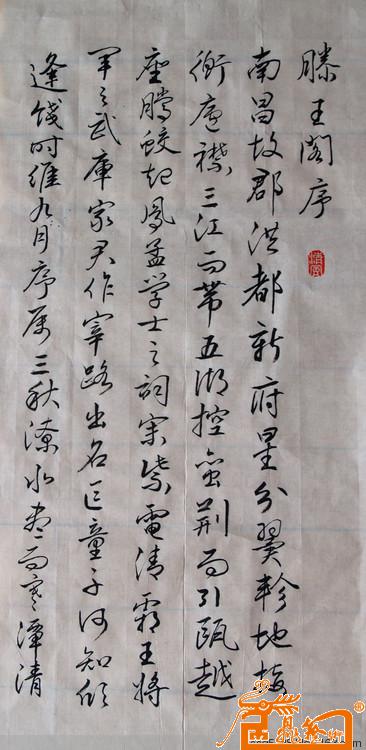 滕王阁序
南昌故郡洪都新府星分翼轸地接
衡庐襟三江而带五湖控蛮荆而引瓯越
座腾蛟起鳳孟学士之词宗紫電清霜王将
军之武庫家君作宰路出名区童子何知躬
逢饯时维九月序属三秋潦水尽而寒潭清